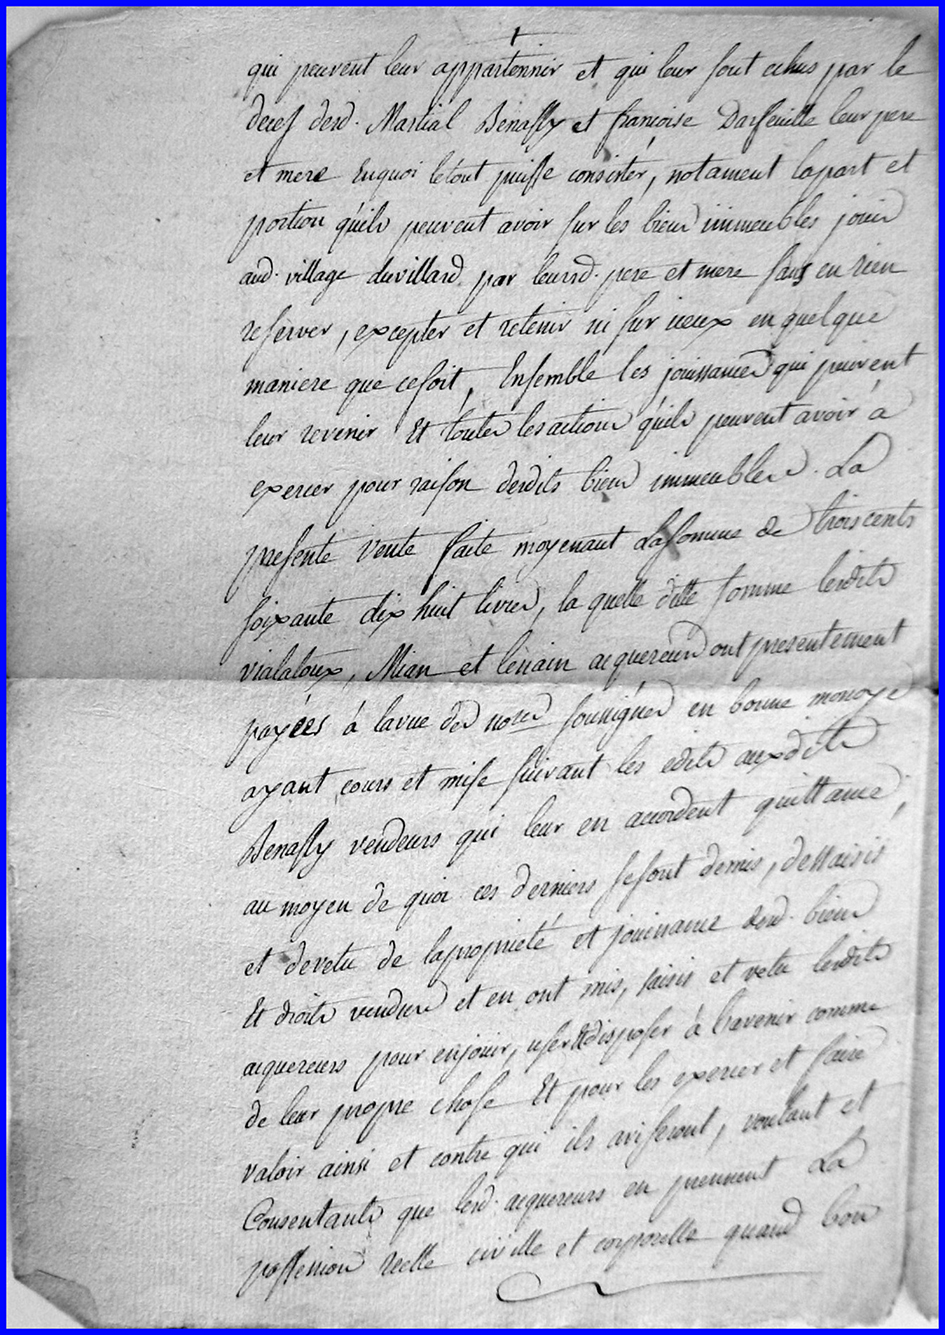 qui peuvent leur appartennir et qui leur sont echus par le
deces desd. Martial Benassy et françoise Darfeuille leur pere
et mere Enquoi letout puisse consister, notament lapart et
portion quils peuvent avoir sur les biens immeubles jouis
aud. village duvillard par leursd. pere et mere sans en rien
reserver, excepter et retenir ni sur iceux en quelque
maniere que cesoit, Ensemble les jouissances qui peuvent
leur revenir Et toutes lesactions quils peuvent avoir à
exercer pour raison desdits biens immeubles. La
presente vente faite moyenant La somme de trois cents
soixante dix huit livres, la quelle ditte somme lesdits
vialatoux, Mian et acquereurs ont presentement
payées à lavue des nores soussignés en bonne monoye
ayant cours et mise suivant les edits auxdits
Benassy vendeurs qui leur en accordent quittance,
au moyen de quoi ces derniers sesont demis, dessaisis
et devetu de lapropriété et jouissance desd. biens
Et droits vendus et en ont mis, saisis et vetu lesdits
acquereurs pour enjouir, user Et disposer à l'avenir comme
de leur propre chose Et pour les exercer et faire
valoir ainsi et contre qui ils aviseront, voulant et
Consentants que lesd. acquereurs en prennent La
possession reelle civille et corporelle quand bon